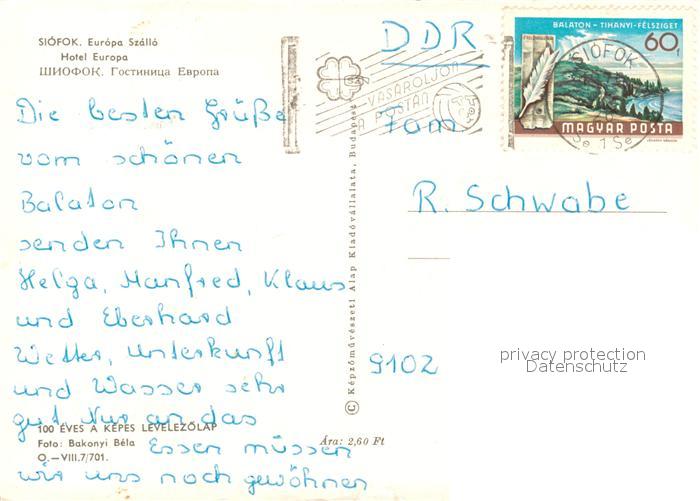 SIÓFOK. Európa Szálló
Hotel Europa
ШИОФОК. Гостиница Европа
Die besten Grüße
vom schönen
Balaton
senden Ihnen
Helga, Manfred, Klaus
und Eberhard
Wetter, Unterkunft
und Wasser sehr
gut. Nur an das
Essen müssen
wir uns noch gewöhnen
100 ÉVES A KÉPES LEVELEZŐLAP
Foto: Bakonyi Béla
O.—VIII.7/701.
Ára: 2,60 Ft
© Képzőművészeti Alap Kiadóvállalata, Budapest
DDR
VÁSÁROLJON
A POSTÁN
Fam
R. Schwabe
9102
privacy protection
Datenschutz
BALATON – TIHANYI-FÉLSZIGET
60f
SIÓFOK
MAGYAR POSTA